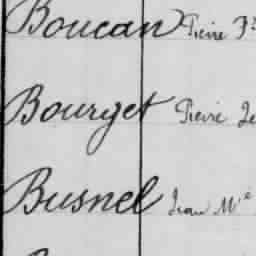 Boucan Pierre Fs
Bourget Pierre Je
Busnel Jean Mie